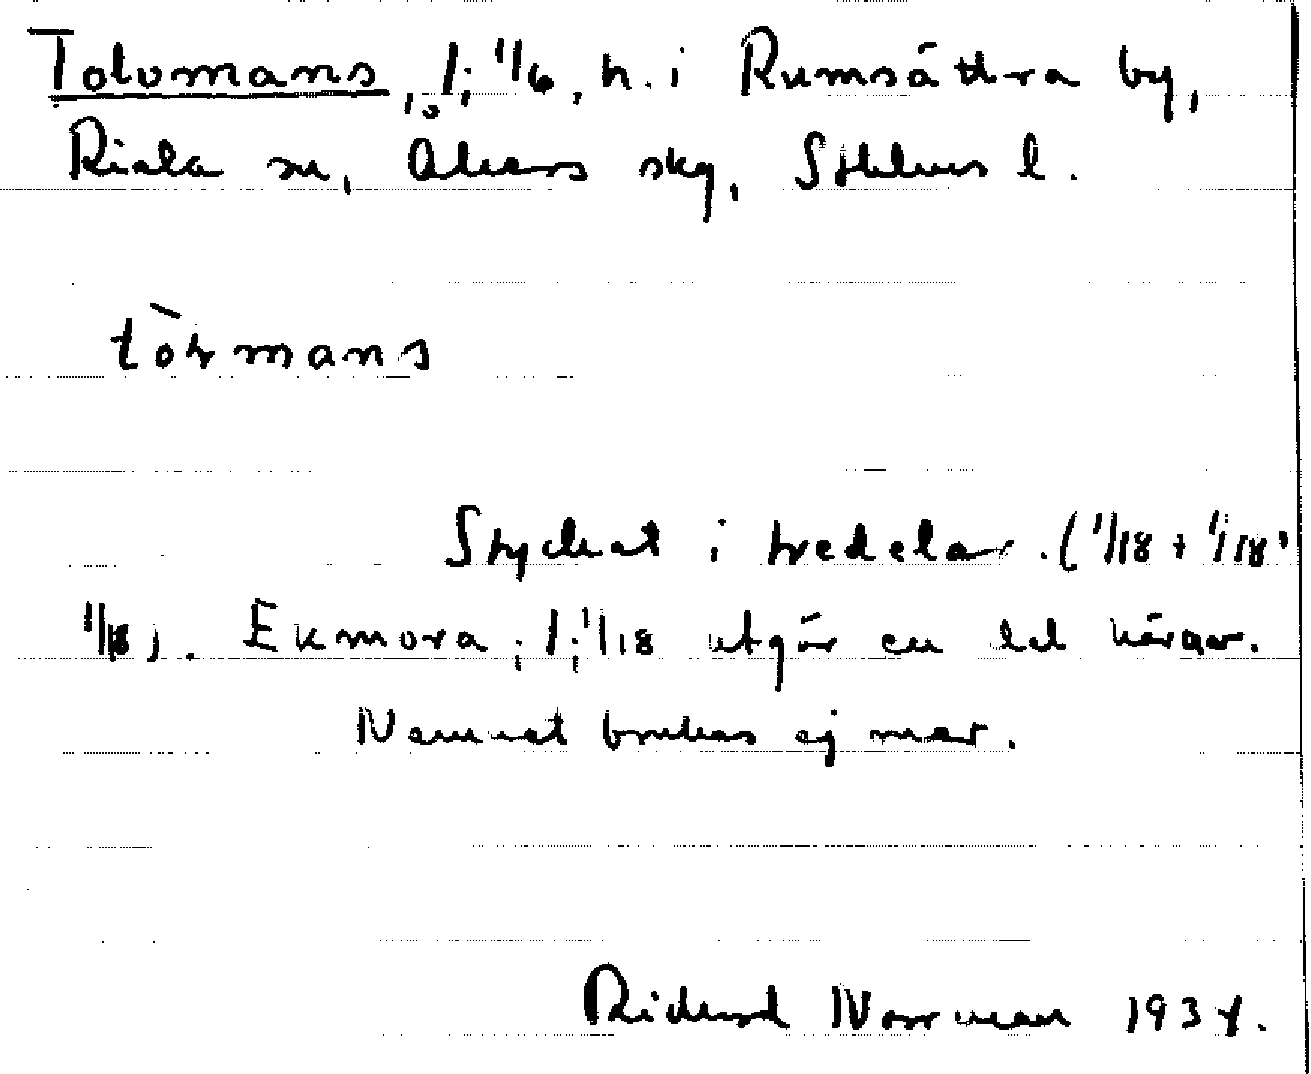 Totomans, 1; 1/6, h. i Rumsättra by,
Riala sn, Åkers skg, Sthlms l.
tòtmans
Styckat i tredelar. (1/18 + 1/18,
1/18). Ekmora; 1; 1/18 utgör en del härav.
Namnet brukas ej mer.
Richard Norrman 193